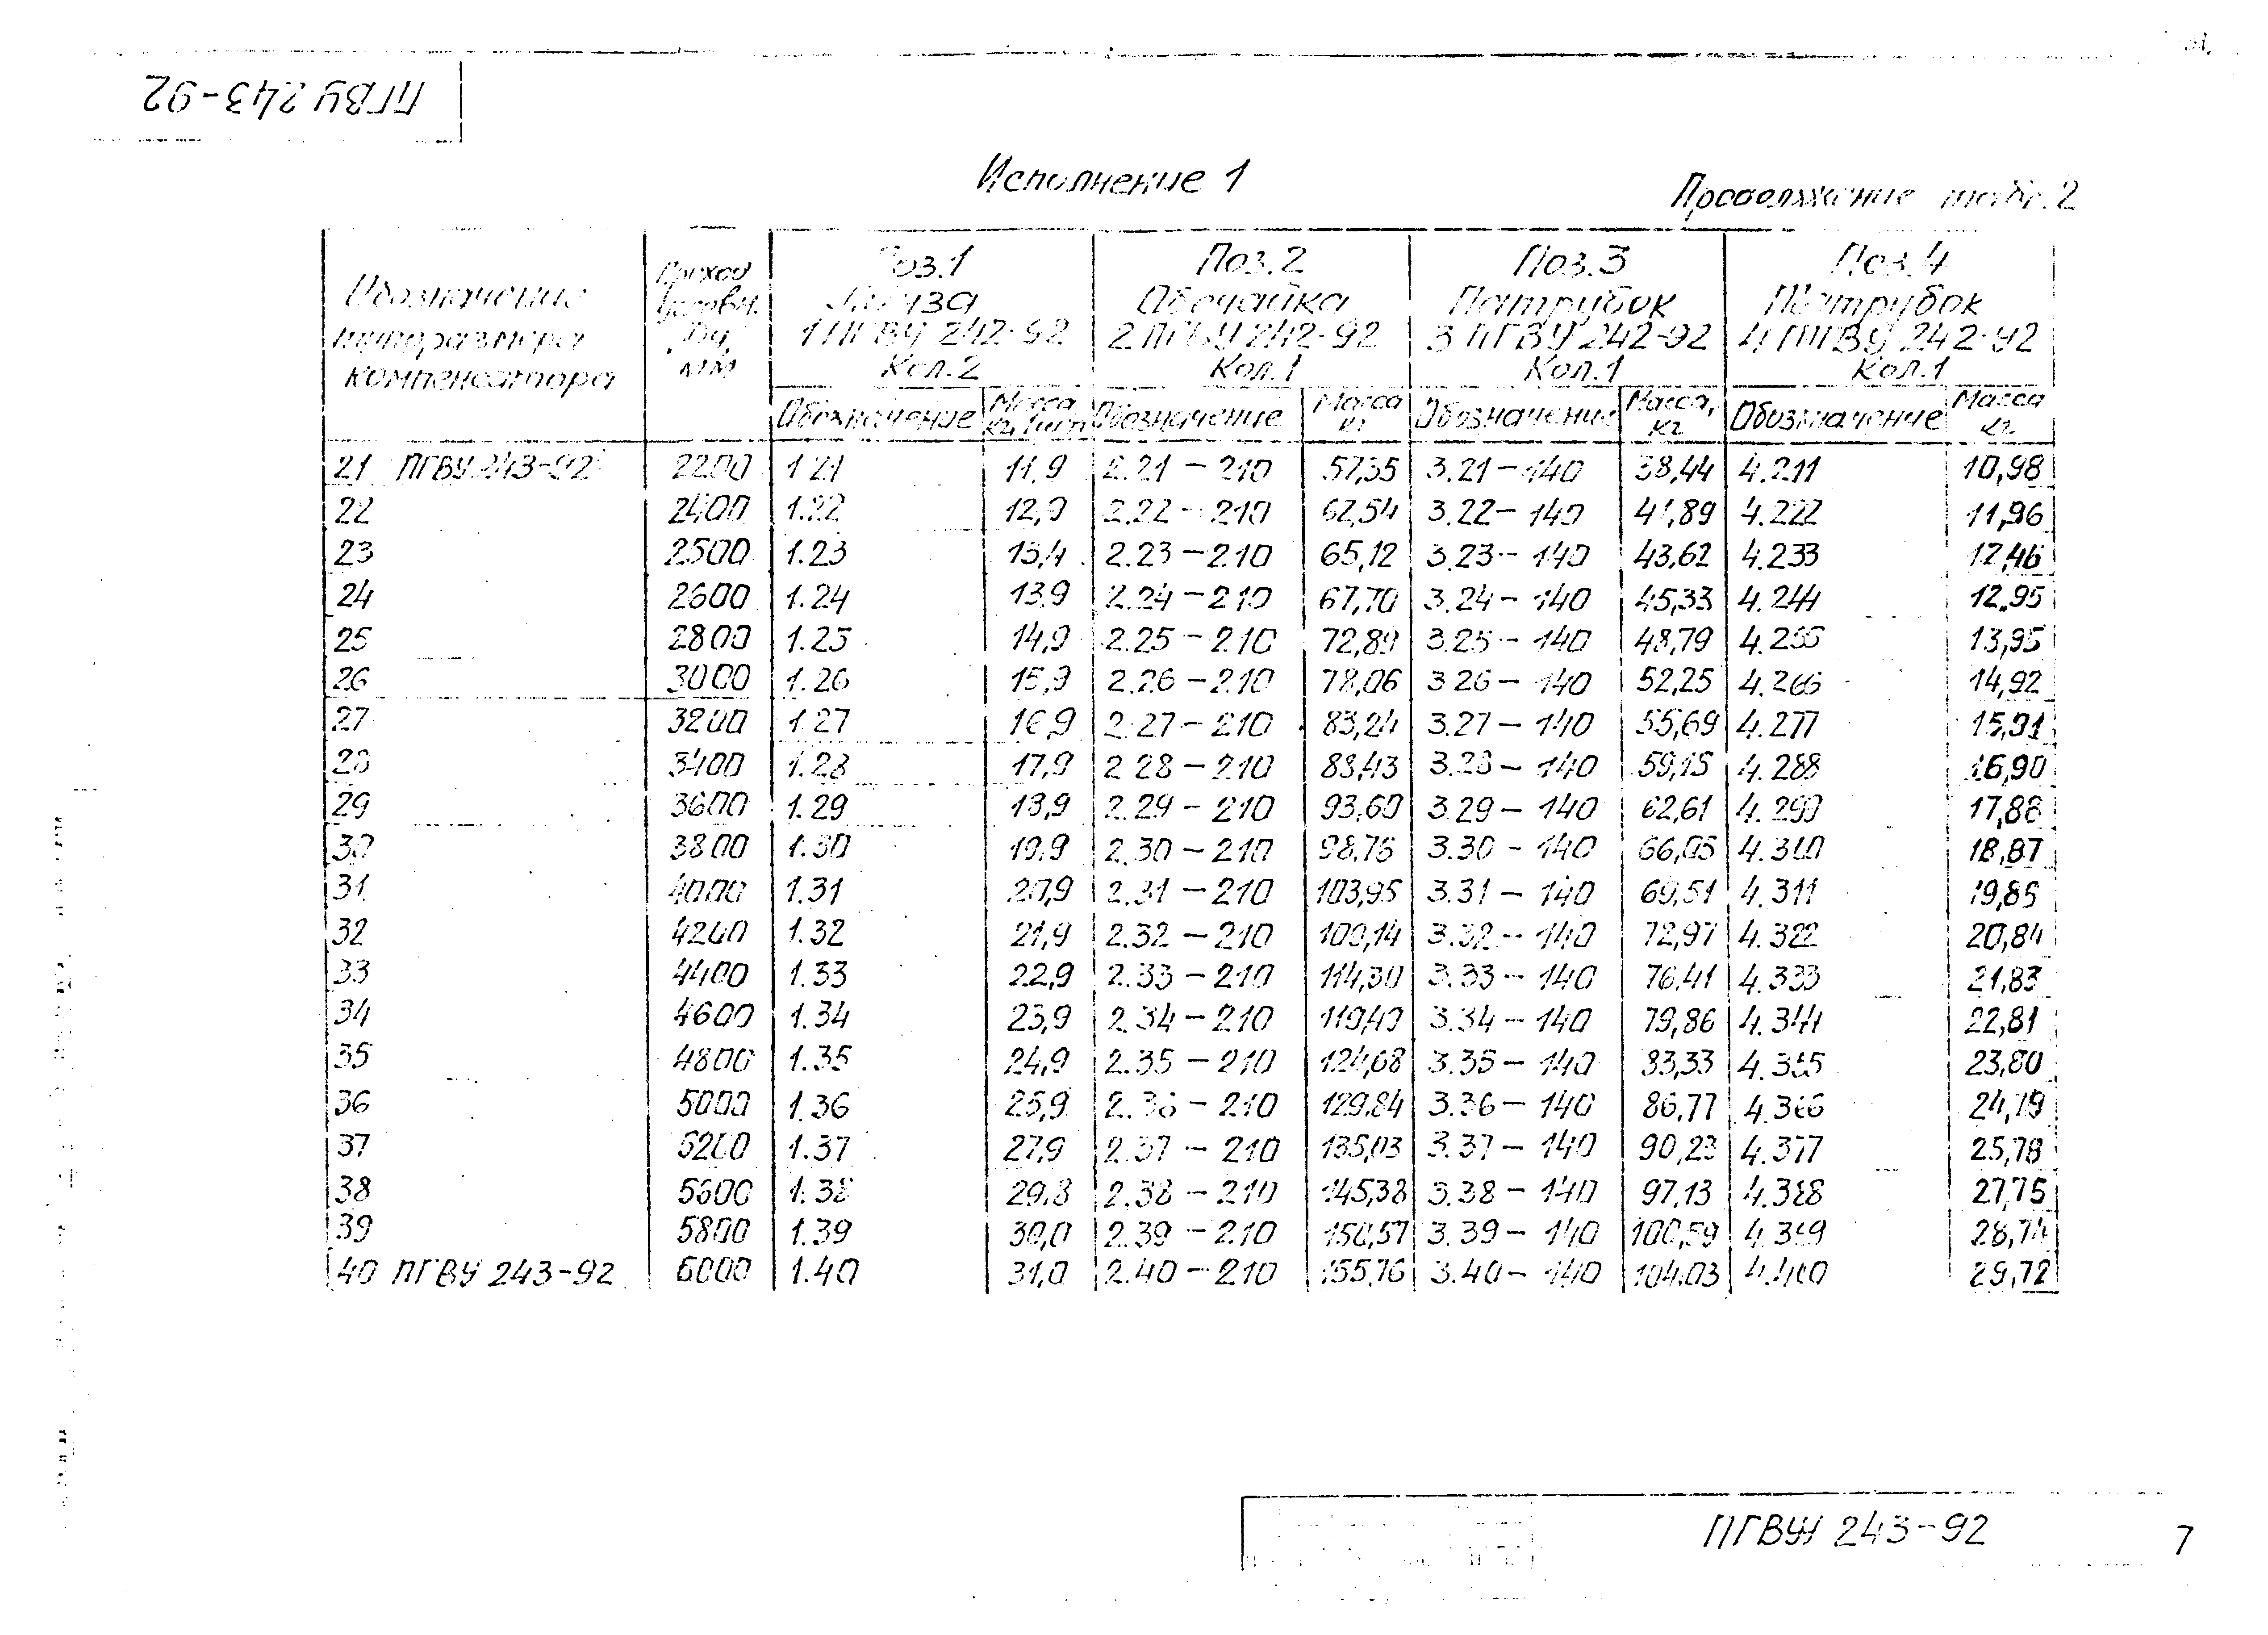 ПГВУ 243-92
Исполнение 1
Продолжение табл. 2
Обозначение типоразмера компенсатора
Проход условн. Dу, мм
Поз. 1
1 ПГВУ 242-92
Кол. 2
Поз. 2 Обечайка 2 ПГВУ 242-92 Кол. 1
Поз. 3 Патрубок 3 ПГВУ 242-92 Кол. 1
Поз. 4 Патрубок 4 ПГВУ 242-92 Кол. 1
Обозначение Масса Обозначение Масса кг Обозначение Масса, кг Обозначение Масса кг
21 ПГВУ 243-92 2200 1.21 11,9 2.21 - 210 57,35 3.21 - 140 38,44 4.211 10,98
22 2400 1.22 12,9 2.22 - 210 62,54 3.22 - 140 41,89 4.222 11,96
23 2500 1.23 13,4 2.23 - 210 65,12 3.23 - 140 43,62 4.233 12,46
24 2600 1.24 13,9 2.24 - 210 67,70 3.24 - 140 45,33 4.244 12,95
25 2800 1.25 14,9 2.25 - 210 72,89 3.25 - 140 48,79 4.255 13,95
26 3000 1.26 15,9 2.26 - 210 78,06 3.26 - 140 52,25 4.266 14,92
27 3200 1.27 16,9 2.27 - 210 83,24 3.27 - 140 55,69 4.277 15,91
28 3400 1.28 17,9 2.28 - 210 88,43 3.28 - 140 59,15 4.288 16,90
29 3600 1.29 18,9 2.29 - 210 93,60 3.29 - 140 62,61 4.299 17,88
30 3800 1.30 19,9 2.30 - 210 98,76 3.30 - 140 66,05 4.300 18,87
31 4000 1.31 20,9 2.31 - 210 103,95 3.31 - 140 69,51 4.311 19,85
32 4200 1.32 21,9 2.32 - 210 109,14 3.32 - 140 72,97 4.322 20,84
33 4400 1.33 22,9 2.33 - 210 114,30 3.33 - 140 76,41 4.333 21,83
34 4600 1.34 23,9 2.34 - 210 119,49 3.34 - 140 79,86 4.344 22,81
35 4800 1.35 24,9 2.35 - 210 124,68 3.35 - 140 83,33 4.355 23,80
36 5000 1.36 25,9 2.36 - 210 129,84 3.36 - 140 86,77 4.366 24,79
37 5200 1.37 27,9 2.37 - 210 135,03 3.37 - 140 90,23 4.377 25,78
38 5600 1.38 29,8 2.38 - 210 145,38 3.38 - 140 97,13 4.388 27,75
39 5800 1.39 30,0 2.39 - 210 150,57 3.39 - 140 100,59 4.399 28,74
40 ПГВУ 243-92 6000 1.40 31,0 2.40 - 210 155,76 3.40 - 140 104,03 4.400 29,72
ПГВУ 243-92
7